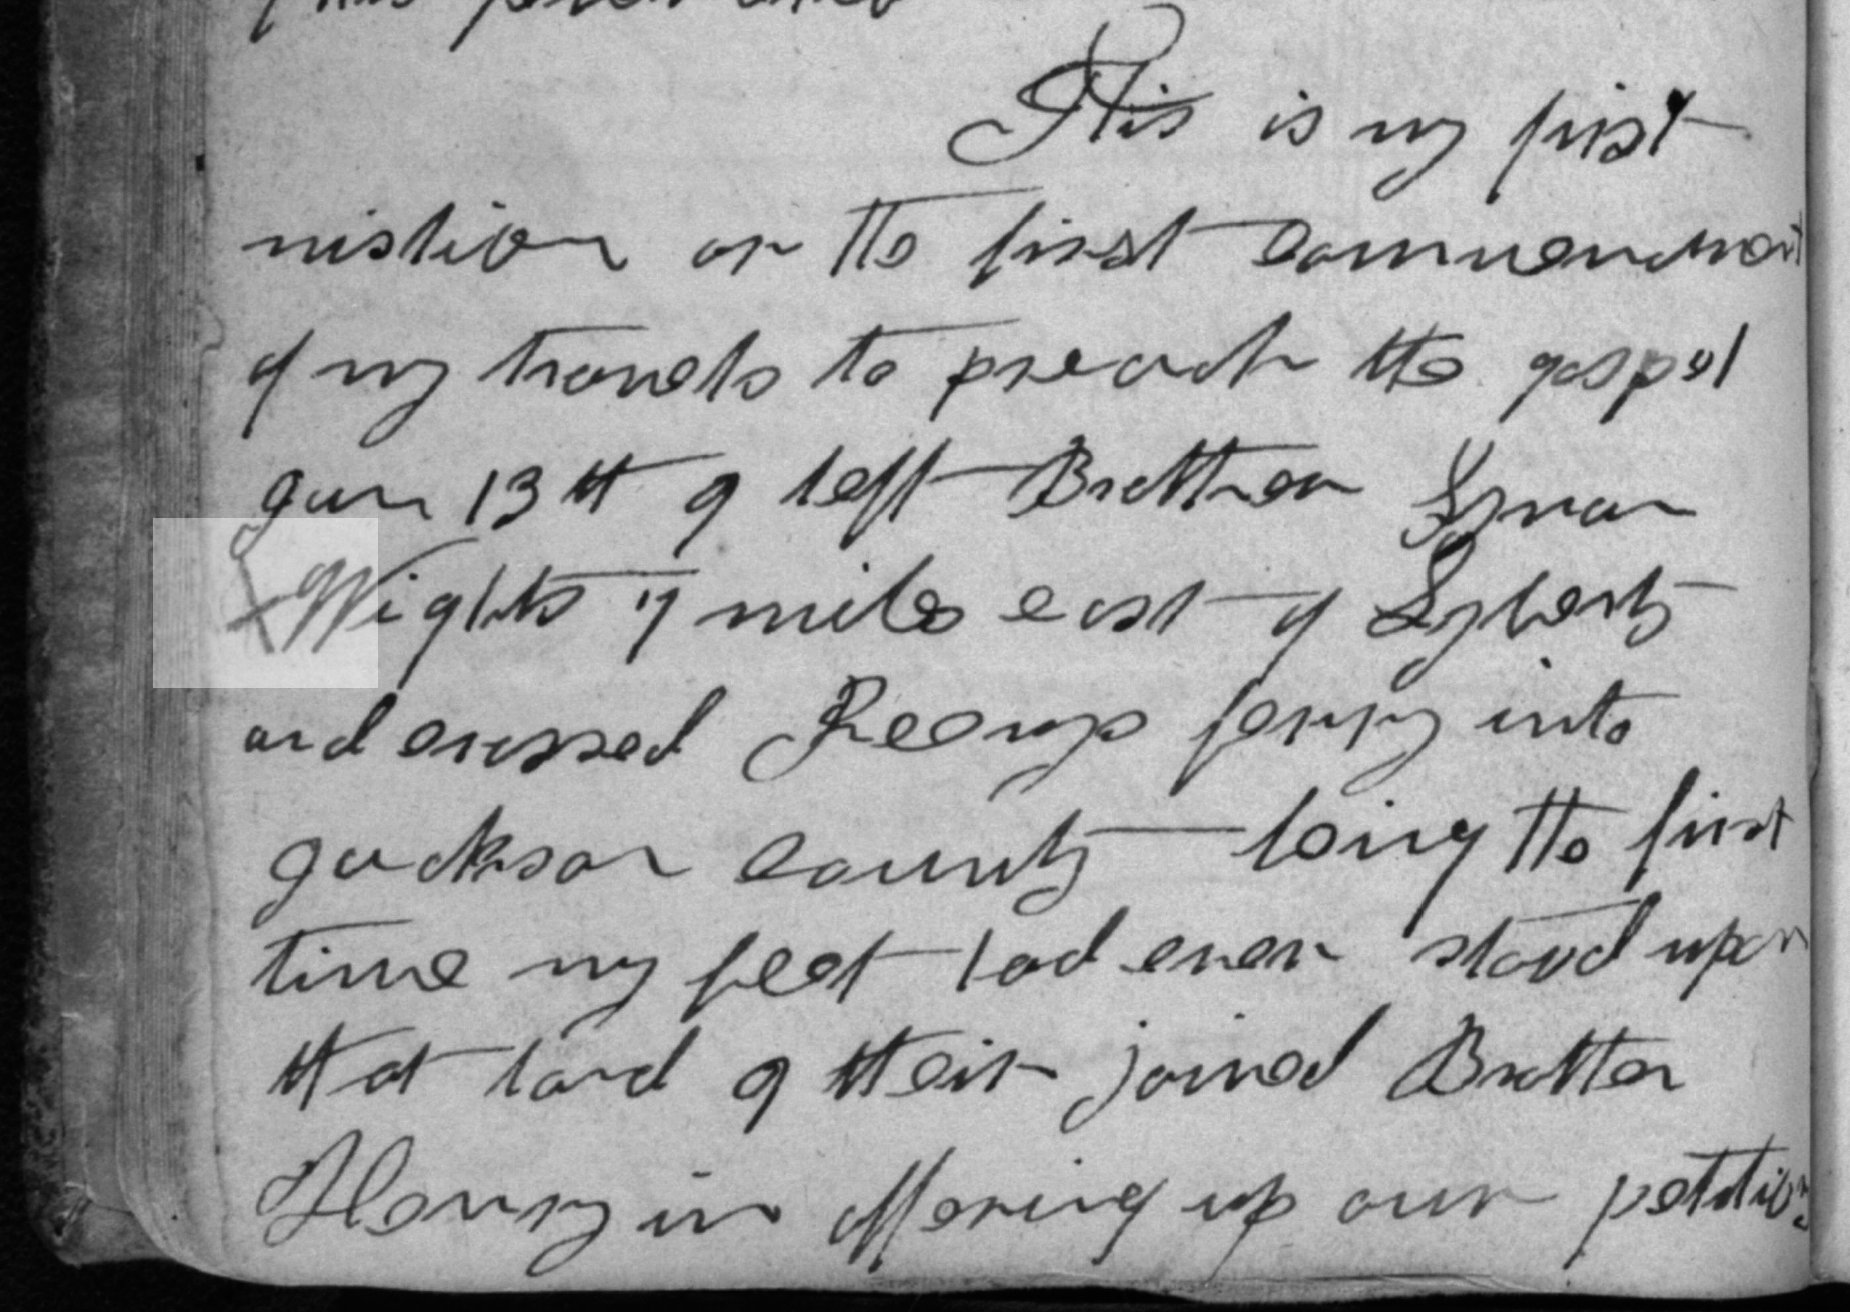 This is my first
mistion or the first commencment
of my travels to preach the gospel
Jan 13th I left Brother Lyman
Wights 7 miles east of Lyberty
and crossed Reeys ferry into
Jackson county being the first
time my feet had ever stood upon
that land I their joined Brother
Henry in offering up our petition